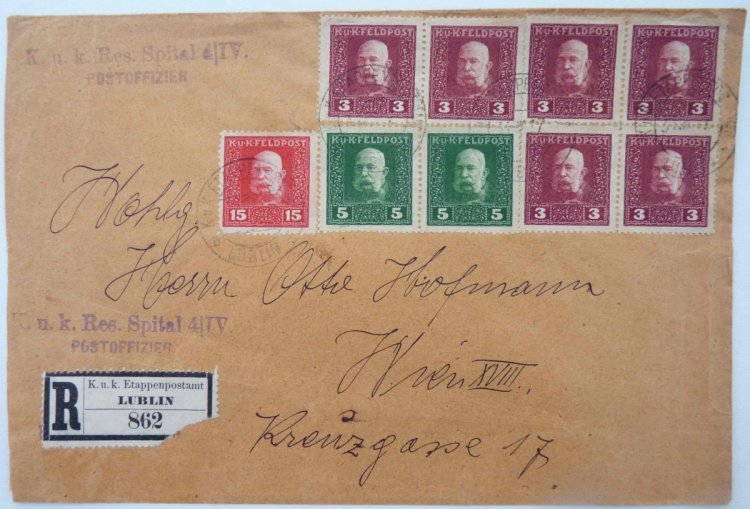 K. u. k. Res. Spital 4/IV.
POSTOFFIZIER
K·u·K·FELDPOST K·u·K·FELDPOST K·u·K·FELDPOST K·u·K·FELDPOST
3 3 3 3 3 3 3 3
K·u·K·FELDPOST K·u·K·FELDPOST K·u·K·FELDPOST K·u·K·FELDPOST K·u·K·FELDPOST
15 15 5 5 5 5 3 3 3 3
LUBLIN
Wohlg
Herrn Otto Hofmann
K. u. k. Res. Spital 4/IV.
POSTOFFIZIER
Wien XVIII.
Kreuzgasse 17
R
K. u. k. Etappenpostamt
LUBLIN
862